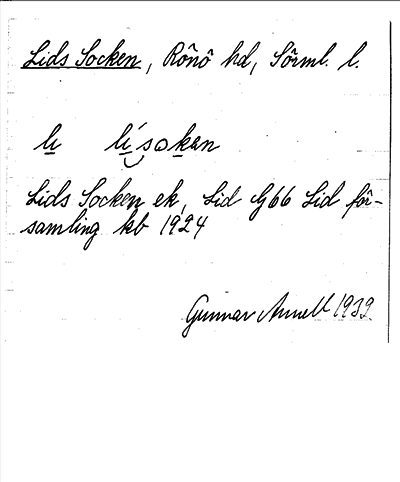 Lids Socken, Rönö hd, Sörml. l.
li li´soken
Lids Socken ek, Lid G66 Lid för-
samling kb 1924
Gunnar Arnell 1939.